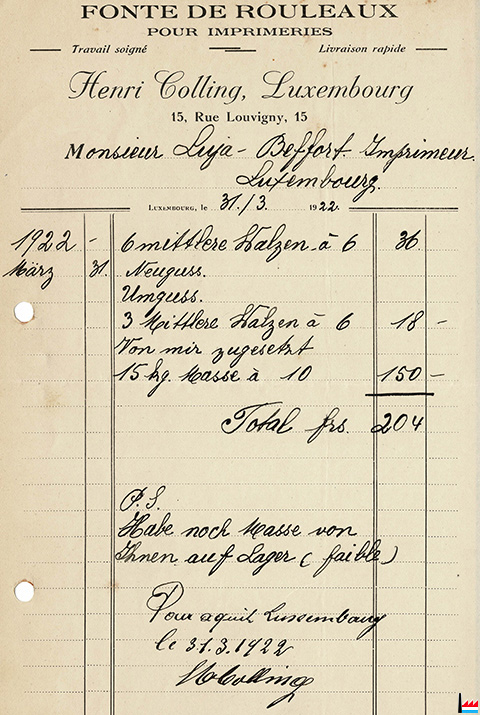 FONTE DE ROULEAUX
POUR IMPRIMERIES
Travail soigné Livraison rapide
Henri Colling, Luxembourg
15, Rue Louvigny, 15
Monsieur Luja-Beffort. Imprimeur.
Luxembourg.
LUXEMBOURG, le 31./3. 1922.
1922 - 6 mittlere Walzen à 6 36
März 31. Neuguss.
Umguss.
3 Mittlere Walzen à 6 18 -
Von mir zugesetzt
15 kg. Masse à 10 150 -
Total frs. 204
P.S.
Habe noch Masse von
Ihnen auf Lager (faible)
Pour aquit Luxembourg
le 31.3.1922
HColling